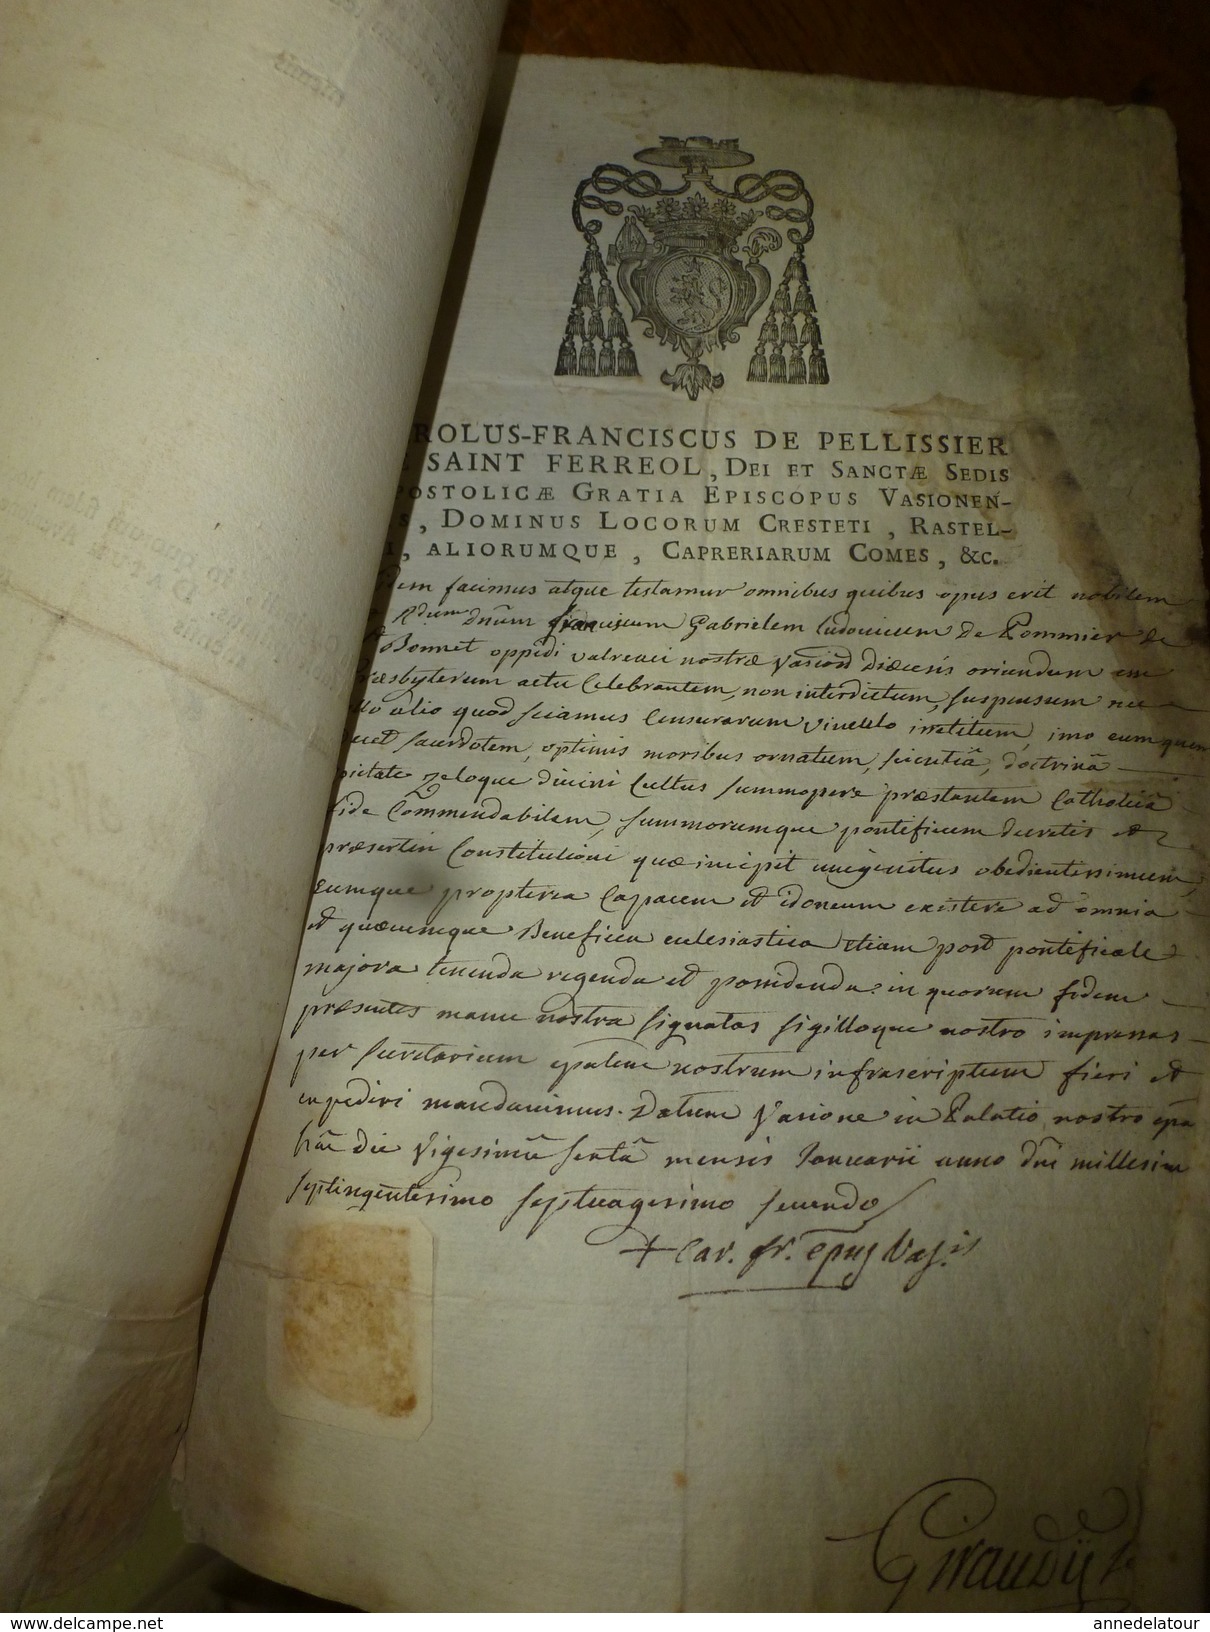 ROLUS-FRANCISCUS DE PELLISSIER
SAINT FERREOL, DEI ET SANCTÆ SEDIS
POSTOLICÆ GRATIA EPISCOPUS VASIONEN-
S, DOMINUS LOCORUM CRESTETI, RASTEL-
I, ALIORUMQUE, CAPRERIARUM COMES, &c.
dem facimus atque testamur omnibus quibus opus erit nobilem
Rdum dnum franciscum Gabrielem ludovicum de Pommier de
Bonnet oppidi valreaci nostræ Diœcesis oriundum
ræsbyterum actu Celebrantem, non interdictum, suspensum nec
llo alio quod sciamus Censurarum vinculo irretitum, imo eumquem
decet sacerdotem, optimis moribus ornatum, scientiâ, doctrinâ
pietate zeloque divini Cultus summopere præstantem Catholicâ
fide Commendabilem, summorumque pontificum decretis et
præsertin Constitutioni quæ incipit unigenitus obedientissimum,
Eumque propterea Capacem et idoneum existere ad omnia
et quæcumque Beneficia ecclesiastica etiam post pontificale
majora tenenda regenda et possidenda. in quorum fidem
præsentes manu nostra signatas sigilloque nostro impressas
per secretarium nostrum infrascriptum fieri et
expediri mandavimus. Datum Vasione in Palatio nostro
hac die Vigesimâ sextâ mensis Januarii anno dni millesimo
septingentesimo septuagesimo secundo
+ Car. fr. epus Vas.is
Giraudy
www.delcampe.net
annedelatour